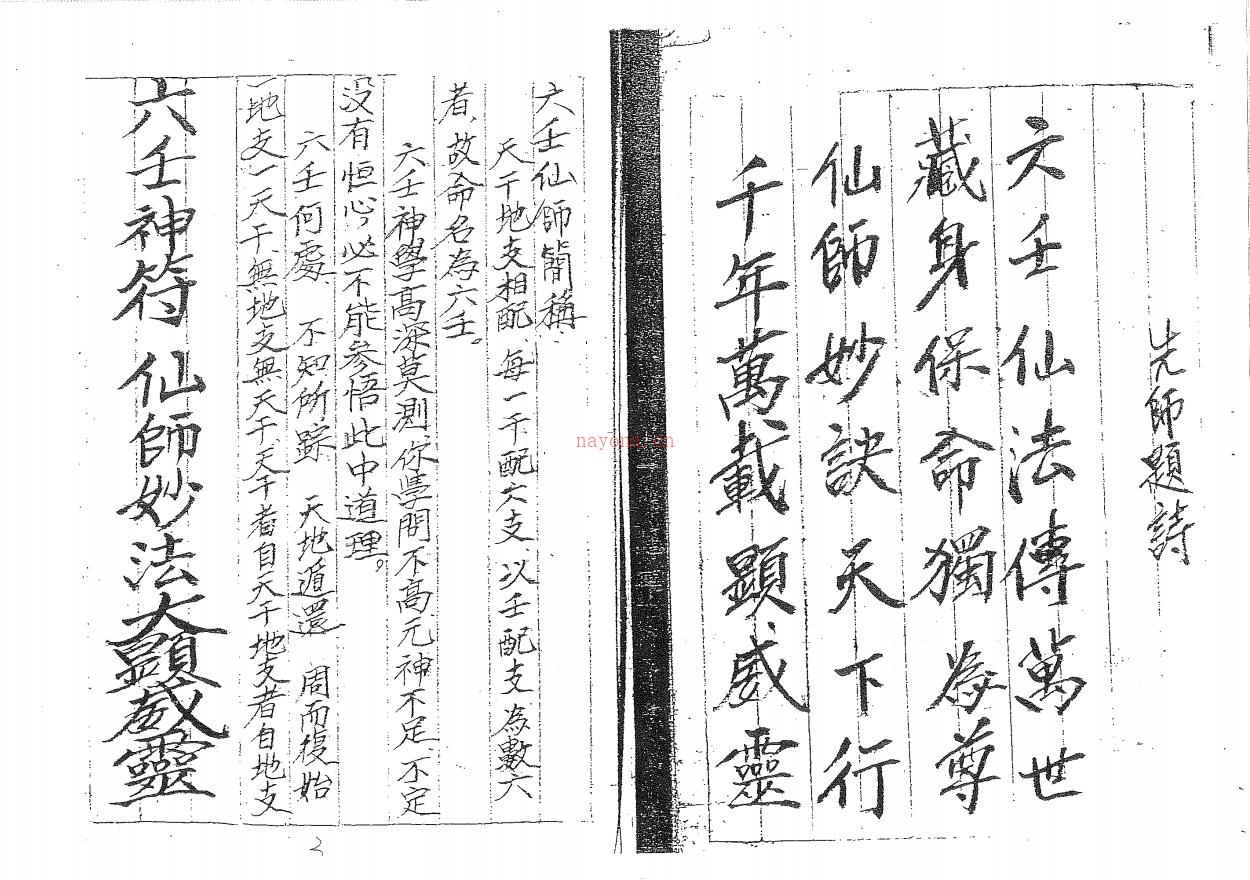 先師題詩
六壬仙法傳萬世
藏身保命獨為尊
仙師妙訣天下行
千年萬載顯威靈
六壬仙師簡稱
天干地支相配、每一干配六支、以壬配支為數六
者、故命名為六壬。
六壬神學高深莫測你學問不高元神不足、不定
没有恒心必不能參悟此中道理。
六壬何處 不知所踪 天地遁還 周而復始
地支一天干、無地支無天干、天干者自天干地支者自地支
六壬神符仙師妙法大顯威靈
2
nayona.cn